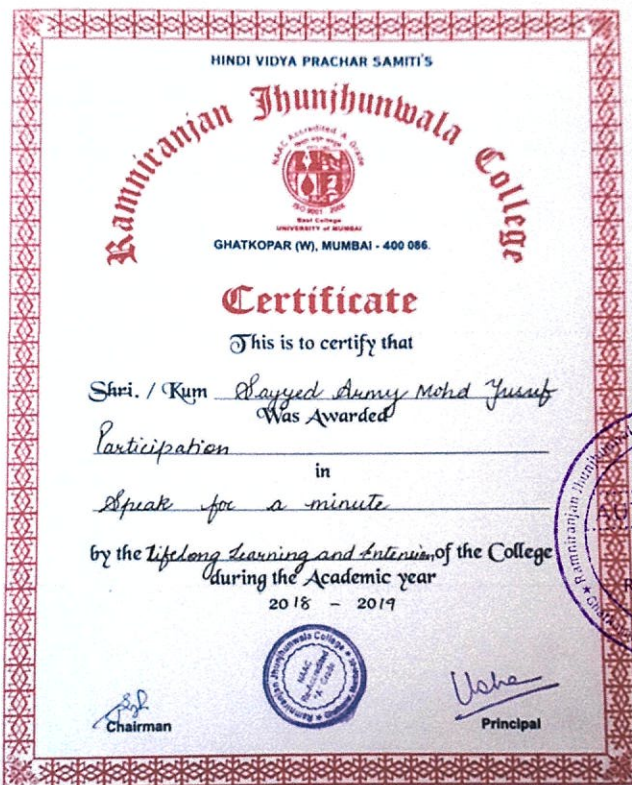 HINDI VIDYA PRACHAR SAMITI'S
Ramniranjan Jhunjhunwala College
NAAC Accredited 'A' Grade
ISO 9001 : 2008
Best College
UNIVERSITY of MUMBAI
GHATKOPAR (W), MUMBAI - 400 086.
Certificate
This is to certify that
Shri. / Kum Sayyed Army Mohd Yusuf
Was Awarded
Participation
in
Speak for a minute
by the Lifelong Learning and Extension of the College
during the Academic year
2018 - 2019
Ramniranjan Jhunjhunwala College
NAAC
Re-Accredited
'A' Grade
Usha
Chairman
Principal
Ramniranjan Jhunjhunwala